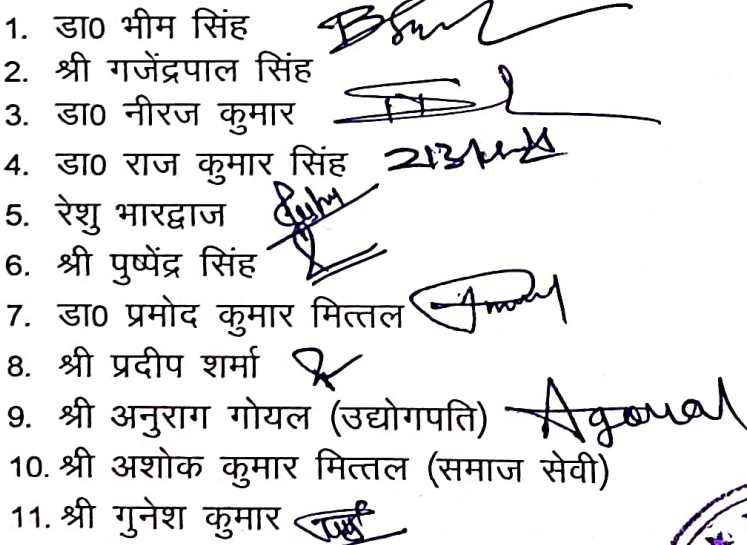 1. डा0 भीम सिंह
2. श्री गजेंद्रपाल सिंह
3. डा0 नीरज कुमार
4. डा0 राज कुमार सिंह
5. रेशु भारद्वाज
6. श्री पुष्पेंद्र सिंह
7. डा0 प्रमोद कुमार मित्तल
8. श्री प्रदीप शर्मा
9. श्री अनुराग गोयल (उद्योगपति) Agoyal
10. श्री अशोक कुमार मित्तल (समाज सेवी)
11. श्री गुनेश कुमार